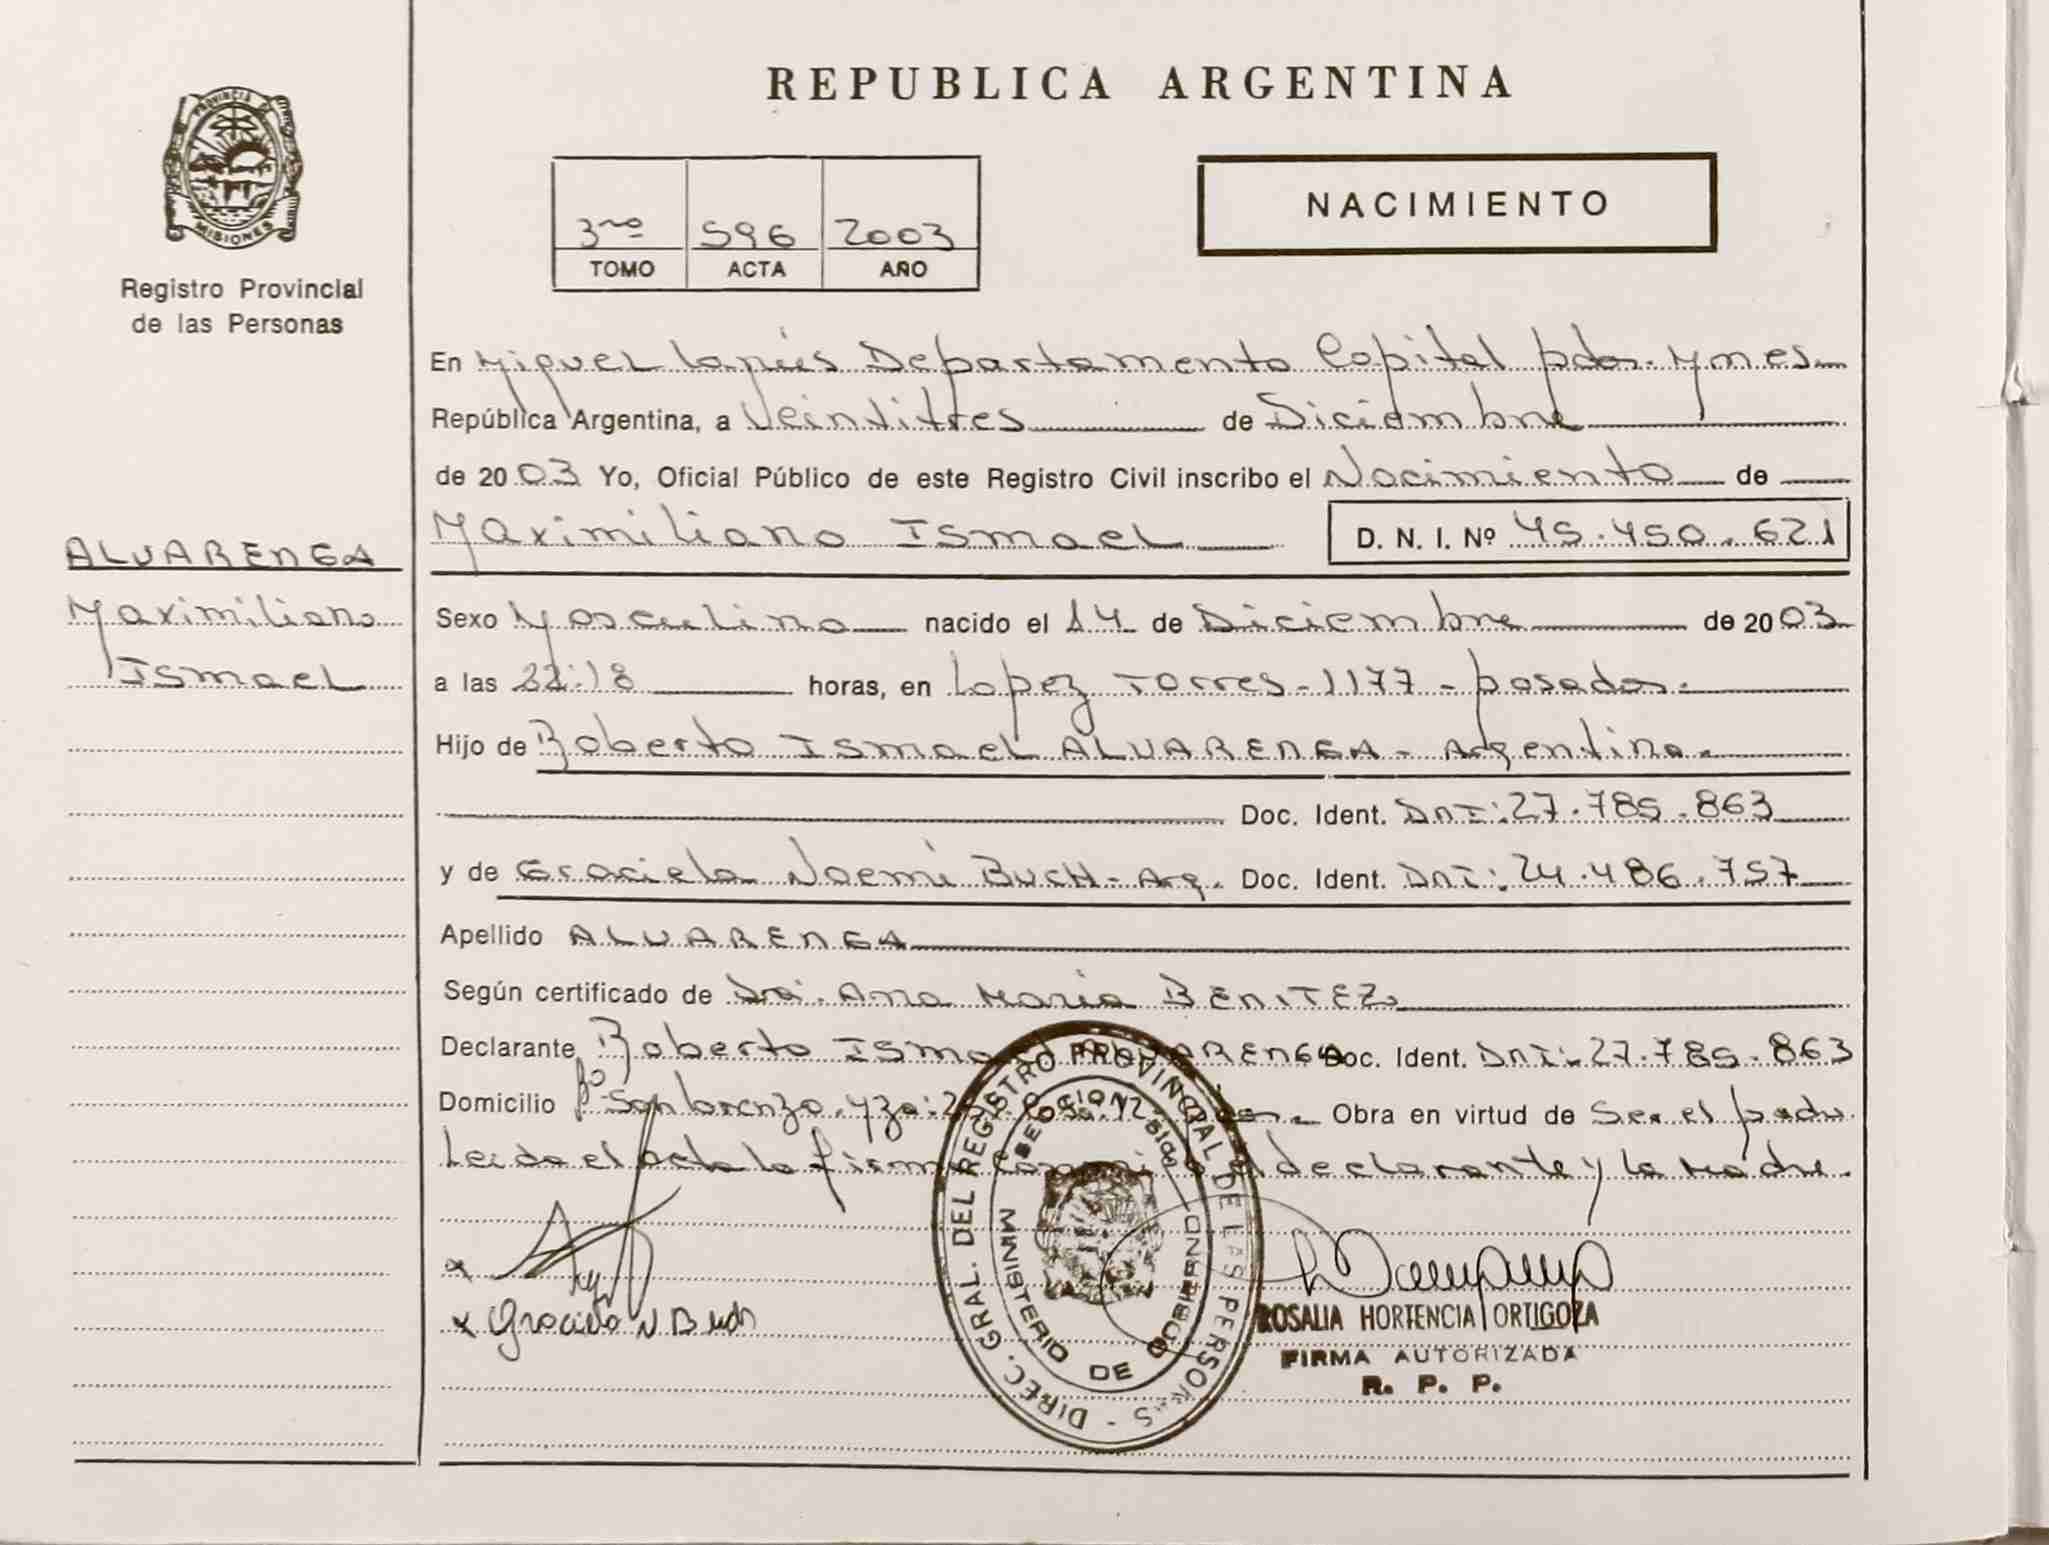 PROVINCIA DE
MISIONES
Registro Provincial
de las Personas
ALVARENGA
Maximiliano
Ismael
REPUBLICA ARGENTINA
3ro 596 2003
TOMO ACTA AÑO
NACIMIENTO
En Miguel Lanús Departamento Capital pdas. Mnes
República Argentina, a Veintitres de Diciembre
de 2003 Yo, Oficial Público de este Registro Civil inscribo el Nacimiento de
Maximiliano Ismael D. N. I. Nº 45.450.621
Sexo Masculino nacido el 14 de Diciembre de 2003
a las 22:18 horas, en Lopez Torres - 1177 - posadas.
Hijo de Roberto Ismael ALVARENGA - Argentino.
Doc. Ident. DNI: 27.785.863
y de Graciela Noemí BUCH - Arg. Doc. Ident. DNI: 24.486.757
Apellido ALVARENGA
Según certificado de Dra. Ana Maria BENITEZ
Declarante Roberto Ismael ALVARENGA Doc. Ident. DNI: 27.785.863
Domicilio Bº San Lorenzo. Mza: Casa: 12 Obra en virtud de Ser el padre
Leida el acta la firma el declarante y la Madre.
Graciela N Buch
DIREC. GRAL. DEL REGISTRO PROVINCIAL DE LAS PERSONAS
SECCION
MINISTERIO DE GOBIERNO
ROSALIA HORTENCIA ORTIGOZA
FIRMA AUTORIZADA
R. P. P.